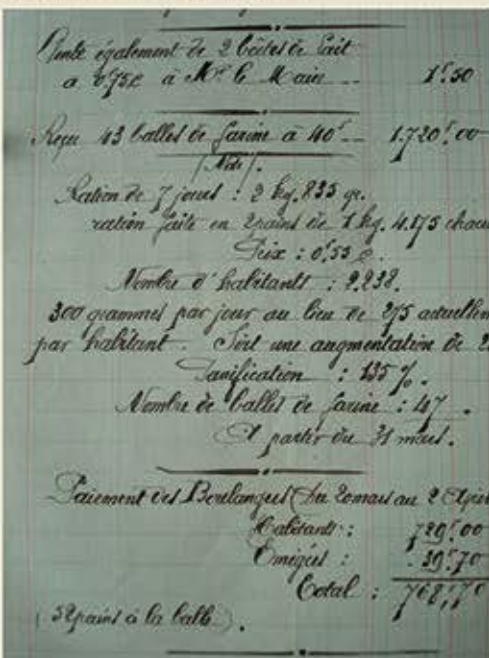 Vente également de 2 boîtes de lait
a 0f75c à Mr le Maire -- 1f.50
Reçu 43 balles de farine à 40f -- 1.720f.00
(Note).
Ration de 7 jours : 2 kg. 835 gr.
ration faite en 2 pains de 1 kg. 4175 chacu
Prix : 0f.55 c.
Nombre d'habitants : 2.238.
300 grammes par jour au lieu de 275 actuellem
par habitant. Soit une augmentation de 2
Panification : 135 %.
Nombre de balles de farine : 47.
A partir du 31 mars.
Paiement des Boulangers (du 20 mars au 2 Avri
Habitants : 729f.00
Emigrés : 39f.70
Total : 768f.70
(52 pains à la balle).